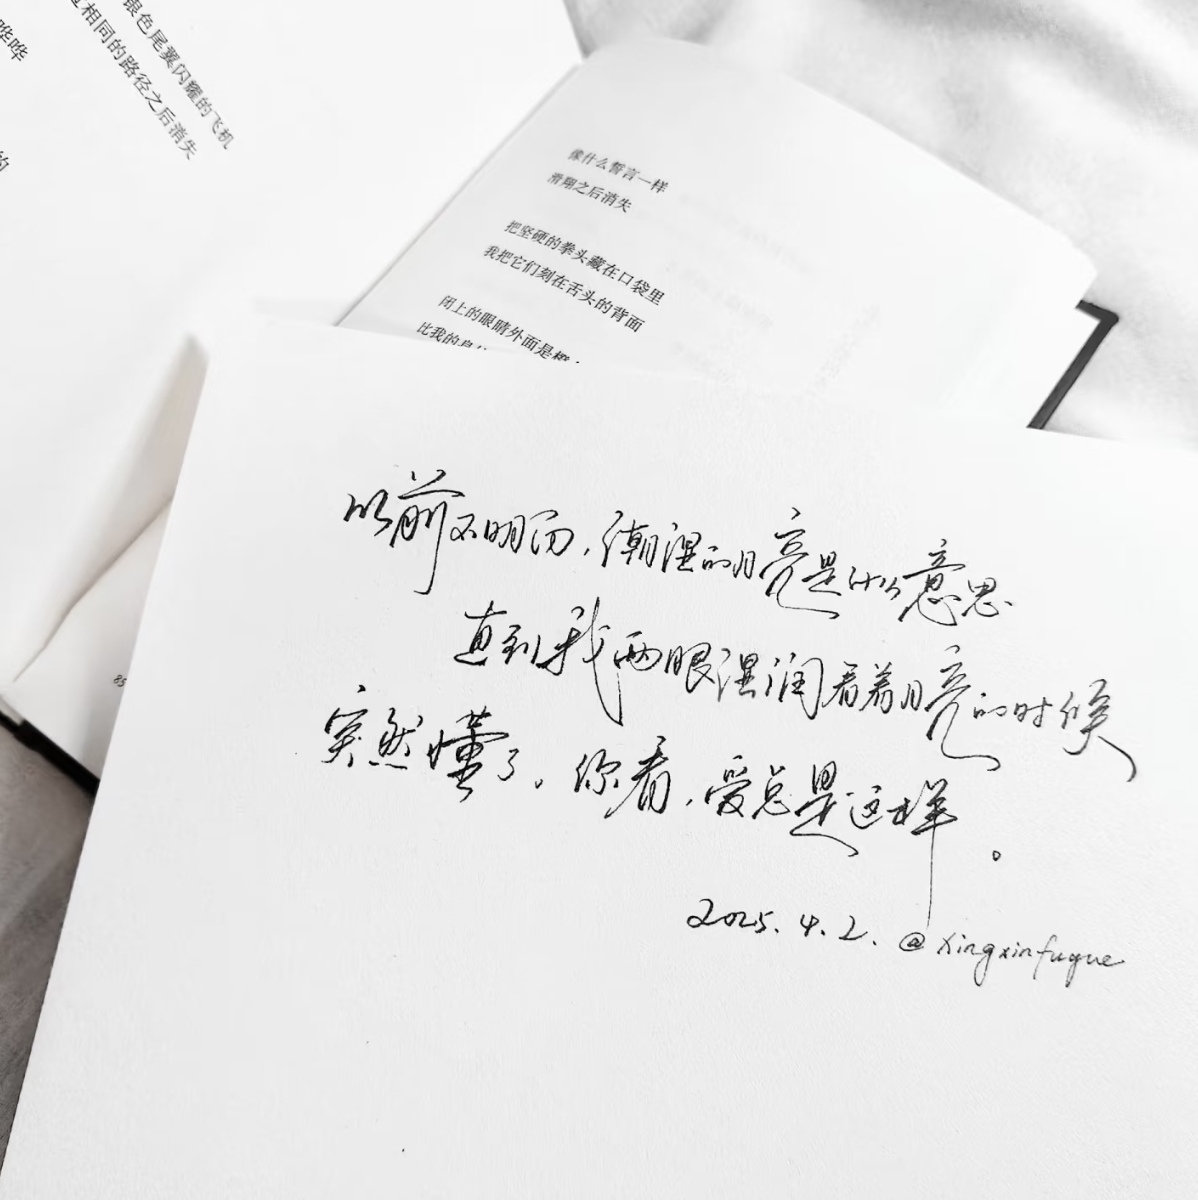 银色尾翼闪耀的飞机
相同的路径之后消失
哗哗
的
像什么誓言一样
滑翔之后消失
把坚硬的拳头藏在口袋里
我把它们刻在舌头的背面
闭上的眼睛外面是
比我的身
85
以前不明白,潮湿的月亮是什么意思
直到我两眼湿润看着月亮的时候
突然懂了。你看,爱总是这样。
2025.4.2. @xingxinfuyue